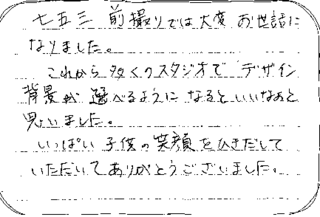 七五三 前撮りでは大変 お世話に
なりました。
これから 多くのスタジオで デザイン
背景が 選べるように なると いいなあと
思いました。
いっぱい 子供の 笑顔を ひきだして
いただいて ありがとうございました。